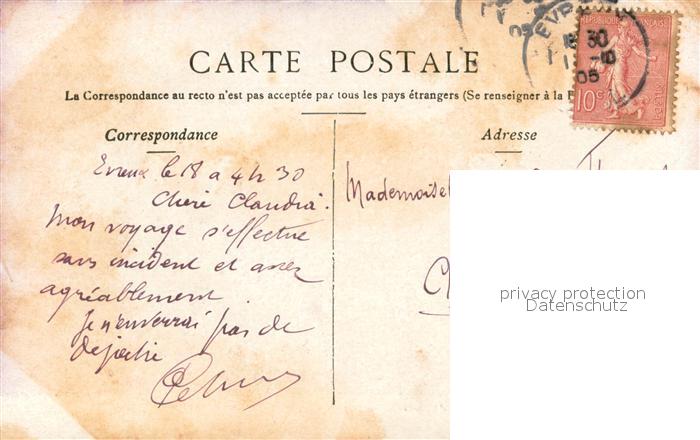 CARTE POSTALE
La Correspondance au recto n'est pas acceptée par tous les pays étrangers (Se renseigner à la
Correspondance
Adresse
REPUBLIQUE FRANÇAISE
10c
POSTES
EVREUX
30
05
Evreux le 18 a 4h 30
Chère Claudia.
Mon voyage s'effectue
sans incident et assez
agréablement.
Je n'enverrai pas de
dépêche
Mademoisel
privacy protection
Datenschutz